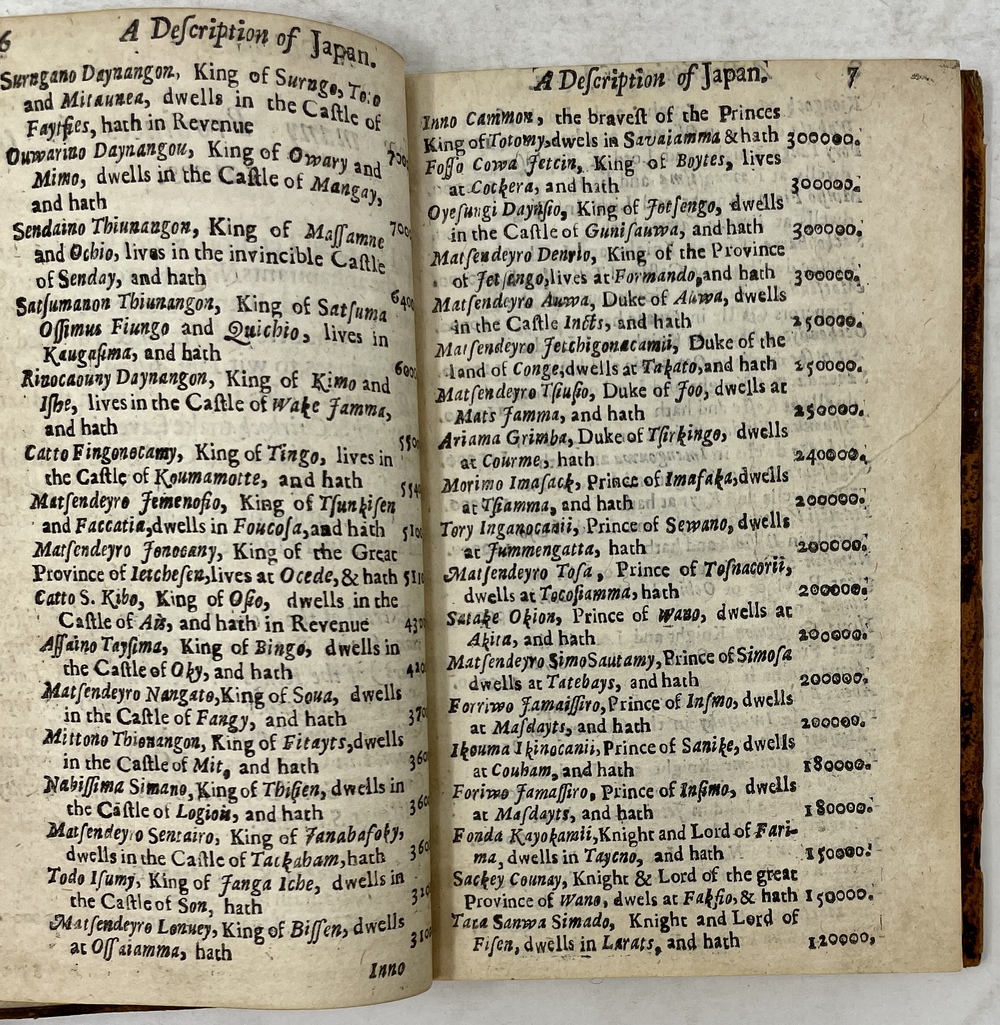 6 A Deſcription of Japan.
Surngano Daynangon, King of Surngo, To:o
and Mitaunea, dwells in the Caſtle of
Faytſies, hath in Revenue 700
Ouwarino Daynangou, King of Owary and
Mimo, dwells in the Caſtle of Mangay,
and hath 700
Sendaino Thiunangon, King of Maſſamne
and Ochio, lives in the invincible Caſtle
of Senday, and hath 640
Satſumanon Thiunangon, King of Satſuma
Oſſimus Fiungo and Quichio, lives in
Kaugaſima, and hath 600
Rinocaouny Daynangon, King of Kimo and
Iſhe, lives in the Caſtle of Wake Jamma,
and hath 550
Catto Fingonocamy, King of Tingo, lives in
the Caſtle of Koumamotte, and hath 554
Matſendeyro Jemenoſio, King of Tſunkiſen
and Faccatia,dwells in Foucoſa,and hath 510
Matſendeyro Jonocany, King of the Great
Province of Ietcheſen,lives at Ocede, & hath 511
Catto S. Kibo, King of Oſio, dwells in the
Caſtle of Ais, and hath in Revenue 430
Aſſaino Tayſima, King of Bingo, dwells in
the Caſtle of Oky, and hath 420
Matſendeyro Nangato,King of Soua, dwells
in the Caſtle of Fangy, and hath 370
Mittono Thionangon, King of Fitayts,dwells
in the Caſtle of Mit, and hath 360
Nabiſſima Simano, King of Thiſien, dwells in
the Caſtle of Logion, and hath 360
Matſendeyro Sentairo, King of Janabafoky,
dwells in the Caſtle of Tackaham,hath 360
Todo Iſumy, King of Janga Iche, dwells in
the Caſtle of Son, hath 320
Matſendeyro Lonuey, King of Biſſen, dwells
at Oſſaiamma, hath 310
Inno
A Deſcription of Japan. 7
Inno Cammon, the braveſt of the Princes
King of Totomy,dwels in Savaiamma & hath 300000.
Foſſo Cowa Jetcin, King of Boytes, lives
at Cockera, and hath 300000.
Oyeſungi Daynſio, King of Jotſengo, dwells
in the Caſtle of Guniſauwa, and hath 300000.
Matſendeyro Denrio, King of the Province
of Jetſengo,lives at Formando,and hath 300000.
Matſendeyro Auwa, Duke of Auwa, dwells
in the Caſtle Incts, and hath 250000.
Matſendeyro Jetchigonacamii, Duke of the
land of Conge,dwells at Takato,and hath 250000.
Matſendeyro Tſiuſio, Duke of Joo, dwells at
Mats Jamma, and hath 250000.
Ariama Grimba, Duke of Tſirkingo, dwells
at Courme, hath 240000.
Morimo Imaſack, Prince of Imaſaka,dwells
at Tſiamma, and hath 200000.
Tory Inganocaaii, Prince of Sewano, dwells
at Jummengatta, hath 200000.
Matſendeyro Toſa, Prince of Toſnacorii,
dwells at Tocoſiamma, hath 200000.
Satake Okion, Prince of Wano, dwells at
Akita, and hath 200000.
Matſendeyro Simo Sautamy, Prince of Simoſa
dwells at Tatebays, and hath 200000.
Forriwo Jamaiſſiro, Prince of Inſmo, dwells
at Maſdayts, and hath 200000.
Ikouma Ikinocanii, Prince of Sanike, dwells
at Couham, and hath 180000.
Foriwo Jamaſſiro, Prince of Inſimo, dwells
at Maſdayts, and hath 180000.
Fonda Kayokamii,Knight and Lord of Fari-
ma, dwells in Taycno, and hath 150000.
Sackey Counay, Knight & Lord of the great
Province of Wano, dwels at Fakſio, & hath 150000.
Taca Sanwa Simado, Knight and Lord of
Fiſen, dwells in Larats, and hath 120000,